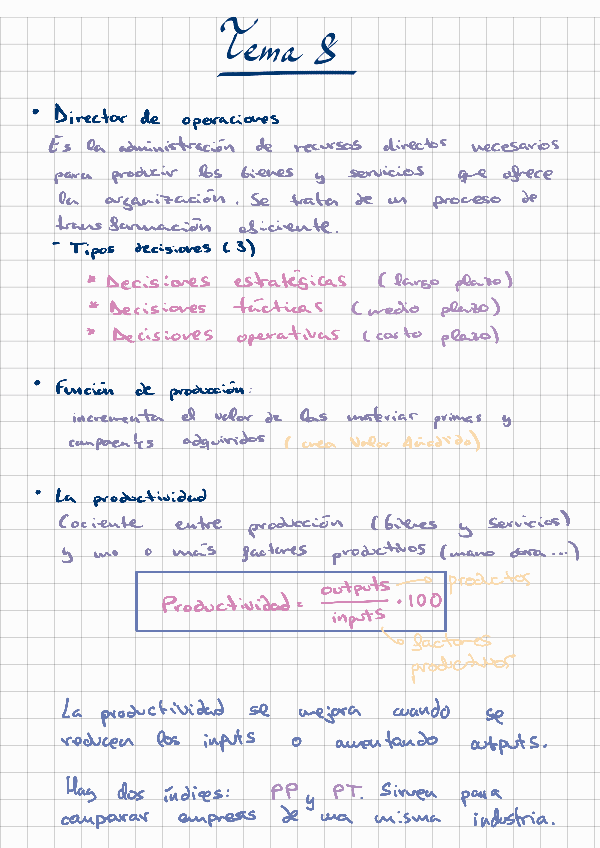 Tema 8
• Director de operaciones
Es la administración de recursos directos necesarios
para producir los bienes y servicios que ofrece
la organización. Se trata de un proceso de
transformación eficiente.
- Tipos decisiones (3)
* Decisiones estratégicas (largo plazo)
* Decisiones tácticas (medio plazo)
* Decisiones operativas (corto plazo)
• Función de producción:
incrementa el valor de las materias primas y
componentes adquiridos (crea Valor Añadido)
• La productividad
Cociente entre producción (bienes y servicios)
y uno o más factores productivos (mano obra...)
Productividad = outputs / inputs · 100
→ productos
→ factores
productivos
La productividad se mejora cuando se
reducen los inputs o aumentando outputs.
Hay dos índices: PP y PT. Sirven para
comparar empresas de una misma industria.